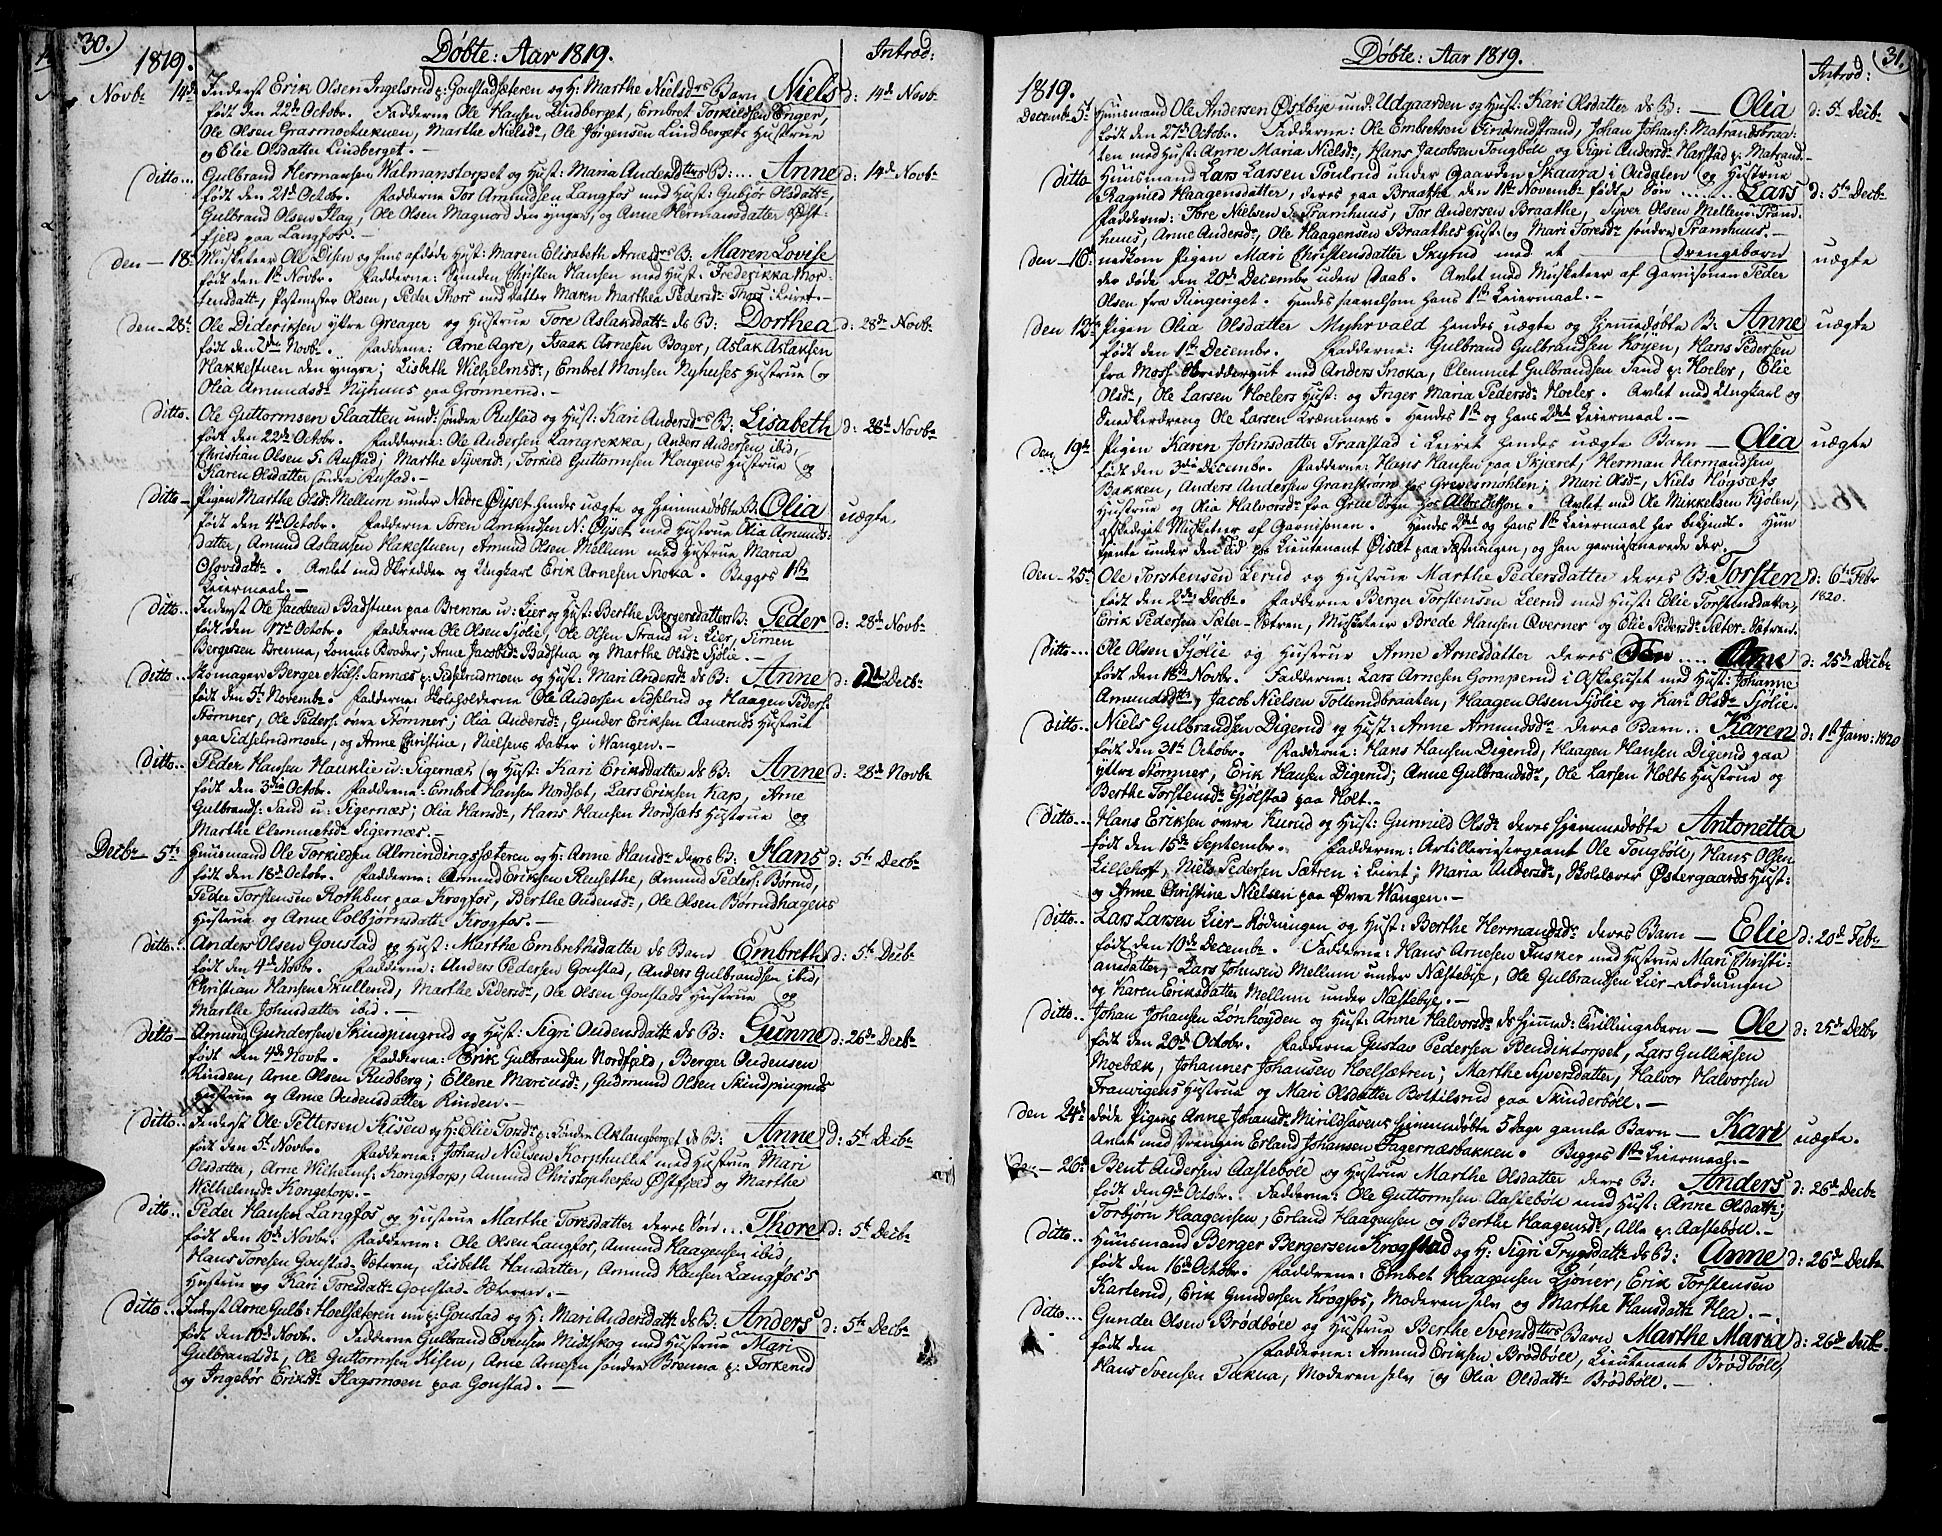 30.)
1819.
Døbte: Aar 1819.
Introd:
Novbr 14de Inderst Erik Olsen Ingelsrud p: Goustadsæteren og H: Marthe Nielsdrs Barn Niels d: 14de Novbr
født den 22de Octobr. Fadderne Ole Hansen Lindberget, Embret Torkildsen Enger,
Ole Olsen Grasmoetuknen, Marthe Nielsdr, Ole Jørgensen Lindbergets Hustrue
og Elie Olsdatter Lindberget.
ditto... Gulbrand Hermansen Walmanstorpet og Hust: Maria Andersdtters B: ... Anne d: 14de Novbr
født den 21de Octobr. Fadderne Tor Amundsen Langfos med Hust: Gubjør Olsdattr,
Gulbrand Olsen Flag, Ole Olsen Magnor den yngre, og Anne Hermansdatter Øst-
fjeld paa Langfos.
den - 18de Musketeer Ole Disen og hans afdøde Hust: Maren Elisabeth Arnesdrs B: Maren Lovise
født den 1ste Novbr. Fadderne: Christen Hansen med Hust: Frederikka Mor-
tensdattr, Postmester Olsen, Peder Thorss med datter Maren Marthea Pedersdr Thors i Leiret.
den - 28de Ole Dideriksen yttre Greager og Hustrue Tore Aslaksdattr ds B: Dorthea d: 28de Novbr
født den 2den Novbr. Fadderne: Arne Agre, Isaak Arnesen Boger, Aslak Aslaksen
Hakkestuen den yngre; Lisbeth Wilhelmsdr, Embret Monsen Nyhuses Hustrue og
Olia Amundsdr Nyhuus paa Grønnerud.
ditto. Ole Guttormsen Slaatten und: søndre Rustad og Hust: Kari Andersdrs B: Lisabeth d: 28de Novbr
født den 22de Octobr. Fadderne: Ole Andersen Langrekka, Anders Andersen ibid,
Christian Olsen S: Rustad; Marthe Syversdr, Torkild Guttormsen Hougens Hustrue og
Karen Olsdatter søndre Rustad.
ditto - Pigen Marthe Olsdr Mellum under Nedre Øyset hendes uægte og hjemmedøbte B: Olia uægte
født den 4de Octobr. Fadderne Søren Amundsen N: Øyset med Hustrue Olia Amunds-
datter, Amund Aslaksen Hakestuen, Amund Olsen Mellum med Hustrue Maria
Olsdattr. Avlet med Skredder og Ungkarl Erik Arnesen Snoka. Begges 1ste
Leiermaal.
ditto.. Inderst Ole Jacobsen Badstuen paa Brenna u: Lier og Hust: Berthe Bergersdatters B: Peder d: 28de Novbr
født den 17de Octobr. Fadderne Ole Olsen Sjølie, Ole Olsen Strand u: Lier, Simen
Bergersen Brenna, Konens Broder; Arne Jacobsdr Badstua og Marthe Olsdr Sjølie.
ditto.. Skomager Berger Niels: Sannæs p: Sidselrudmoen og Hust: Mari Andersdr ds B: Anne d: 12de Decbr
født den 5te Novembr. Fadderne: Skoleholderne Ole Andersen Sidselrud og Haagen Peders:
Stømner, Ole Peders: øvre Stømner; Olia Andersdr, Gunder Eriksen Aaneruds Hustrue
paa Sidselrudmoen, og Anne Christine, Nielsens datter i Wangen.
ditto.. Peder Hansen Hauklie u: Sigernæs og Hust: Kari Eriksdatter ds B: Anne d: 28de Novbr
født den 3die Octobr. Fadderne: Embret Hansen Nordsæt, Lars Eriksen Kap, Arne
Gulbrands: Sand u: Sigernæs; Olia Hansdr, Hans Hansen Nordsæts Hustrue og
Marthe Clemmetsdr Sigernæs.
Decbr 5te Huusmand Ole Torkildsen Almindingssæteren og H: Anne Hansdr deres B: Hans d: 5te Decbr
født den 18de Octobr. Fadderne: Amund Eriksen Reusethe, Amund Peders: Børrud,
Peder Torstensen Rothbur paa Krogfos, Berthe Audensdr, Ole Olsen Børrudhagens
Hustrue og Anne Colbjørnsdattr Krogfos.
ditto. Anders Olsen Goustad og Hust: Marthe Embrethsdatter ds Barn Embreth d: 5te Decbr
født den 4de Novbr. Fadderne: Anders Pedersen Goustad, Anders Gulbrandsen ibid,
Christian Hansen Skullerud, Marthe Pedersdr, Ole Olsen Goustads Hustrue og
Marthe Johnsdatter ibid.
ditto - Amund Gundersen Skindpungrud og Hust: Sigri Audensdattr ds B: Gunne d: 26de Decbr
født den 4de Novbr. Fadderne: Erik Gulbrandsen Nordfield, Berger Audensen
Rinden, Arne Olsen Rudberg; Ellene Mariusdr, Gudmund Olsen Skindpungruds
Hustrue og Anne Audensdatter Rinden.
ditto.. Inderst Ole Pettersen Kisen og H: Elie Torsdr p: søndre Aklangberget ds B: Anne d: 5te Decbr
født den 5te Novbr. Fadderne: Johan Nielsen Korphullet med Hustrue Mari
Olsdatter, Arne Wilhelms: Kongetorp, Amund Christophersen Østfjeld og Marthe
Wilhelmsdr Kongetorp.
ditto.. Peder Hansen Langfos og Hustrue Marthe Toresdatter deres Søn ... Thore d: 5te Decbr
født den 10de Novbr. Fadderne: Ole Olsen Langfos, Amund Haagensen ibid,
Hans Toresen Goustad-Sæteren, Lisbeth Hansdatter, Amund Hansen Langfos's
Hustrue og Kari Toresdattr Goustad-Sæteren.
ditto.. Inderst Arne Gulb: Hoelsæteren nu p: Goustad og H: Mari Andersdattr ds B: Anders d: 5te Decbr
født den 10de Novbr. Fadderne Gulbrand Evensen Midtskog med Hustrue Mari
Gulbrandsdr, Ole Guttormsen Kisen, Arne Arnesen søndre Brenna p: Torkerud
og Ingebør Eriksdr Flagsmoen paa Goustad.
31.
1819.
Døbte: Aar 1819.
Introd:
Decembr 5te Huusmand Ole Andersen Østbye und: Udgaarden og Hust: Kari Olsdatter ds B: Olia d: 5te Decbr
født den 27de Octobr. Fadderne: Ole Embretsen Finsrudstrand, Johan Johans: Matrandsbraa-
ten med Hust: Anne Maria Nielsdr, Hans Jacobsen Tougbøll og Sigri Andersdr Harstad p: Matrand.
ditto Huusmand Lars Larsen Poulsrud under Gaarden Skaara i Oudalen og Hustrue
Ragnild Haagensdatter, deres paa Braathe den 11te Novembr fødte Søn ...... Lars d: 5te Decbr
Fadderne: Tore Nielsen S: Pramhuus, Tor Andersen Braathe, Syver Olsen Mellem-Pram-
huus, Anne Andersdr, Ole Haagensen Braathes Hust: og Mari Toresdr søndre Pramhuus.
den - 16de nedkom Pigen Mari Christensdatter Skyrud med et Drengebarn uægte
der døde den 20de Decembr uden Daab. Avlet med Musketeer af Garnisonen Peder
Olsen fra Ringeriget. Hendes saavelsom Hans 1ste Leiermaal.
den 12te Pigen Olia Olsdatter Myhrvald hendes uægte og hjemmedøbte B: Anne uægte
født den 1ste Decembr. Fadderne: Gulbrand Gulbrandsen Røyen, Hans Pedersen
fra Moss Skreddergut med Anders Snoka, Clemmet Gulbrandsen Sand p: Hoeler, Elie
Olsdr, Ole Larsen Hoelers Hust: og Inger Maria Pedersdr Hoeler. Avlet med Ungkarl og
Snedkerdreng Ole Larsen Kræmmers. Hendes 1ste og hans 2det Leiermaal.
den 19de Pigen Karen Johnsdatter Fraastad i Leiret hendes uægte Barn - Olia uægte
født den 3die Decembr. Fadderne: Hans Hansen paa Skjæret, Herman Hermandsen
Bakken, Anders Andersen Granstrøm hos Grevesmøhlen; Mari Olsdr, Niels Høgsæts
Hustrue og Olia Halvorsdr fra Grue Sogn hos Albrektson. Avlet med Ole Mikkelsen Kjølen,
afskediget Musketeer af Garnisonen. Hendes 2det og hans 1ste Leiermaal her bekjendt. Hun
tjente under den tid hos Lieutenant Øiset paa Fæstningen, og han garnisonerede der.
den - 25de Ole Torstensen Lerud og Hustrue Marthe Pedersdatter deres B: Torsten d: 6te Febr
1820.
født den 2den Decbr. Fadderne Berger Torstensen Leerud med Hust: Elie Torstensdatter,
Erik Pedersen Sæter-Sætren, Musketeer Brede Hansen Overnes og Elie Pedersdr Sæter-Sætren.
ditto... Ole Olsen Sjølie og Hustrue Anne Arnesdatter deres Søn .... Arne d: 25de Decbr
født den 18de Novbr. Fadderne: Lars Arnesen Gomperud i Askehuset med Hust: Johanne
Amundsdttr, Jacob Nielsen Tollerudbraaten, Haagen Olsen Sjølie og Kari Olsdr Sjølie.
ditto.. Niels Gulbrandsen Digerud og Hust: Anne Amundsdr deres Barn .. Karen d: 1ste Janv: 1820
født den 31te Octobr. Fadderne: Hans Hansen Digerud, Haagen Hansen Digerud paa
yttre Stømner, Erik Hansen Digerud; Anne Gulbrandsdr, Ole Larsen Holts Hustrue og
Berthe Torstensdr Gjølstad paa Holt.
ditto... Hans Eriksen øvre Kurud og Hust: Gunnild Olsdr deres hjemmedøbte Antonetta
født den 15de Septembr. Fadderne: Artilleriesergeant Ole Tougbøll, Hans Olsen
Lillehoff, Niels Pedersen Sætren i Leiret; Maria Andersdr, Skolelærer Østergaards Hust:
og Anne Christine Nielsen paa Øvre Wangen.
ditto.. Lars Larsen Lier-Rødningen og Hust: Berthe Hermandsdr deres Barn - Elie d: 20de Feb:
født den 10de Decembr. Fadderne: Hans Arnesen Tusker med Hustrue Mari Christi-
ansdatter, Lars Johnsen Mellum under Næstebye, Ole Gulbrandsen Lier-Rødningen
og Karen Eriksdatter Mellum under Næstebye.
ditto.. Johan Johansen Lønhøyden og Hust: Anne Halvorsdr ds hjemmed: Tvillingebarn - Ole d: 25de Decbr
født den 20de Octobr. Fadderne Gustav Pedersen Bendiktorpet, Lars Gulliksen
Moebæk, Johannes Johansen Hoelsætren; Marthe Syversdatter, Halvor Halvorsen
Franvigens Hustrue og Mari Olsdatter Boltilsrud paa Skinderbøll.
den 24de døde Pigens Anne Johansdr Mirildsævens hjemmedøbte 5 dage gamle Barn - Kari uægte.
Avlet med Drengen Erland Johansen Fagernæsbakken. Begges 1ste Leiermaal.
- 26de Bent Andersen Aastebøll og Hustrue Marthe Olsdatter deres B: Anders d: 26de Decbr
født den 9de Octobr. Fadderne: Ole Guttormsen Aastebøll med Hust: Anne Olsdattr;
Torbjørn Haagensen, Erland Haagensen og Berthe Haagensdr, Alle p: Aastebøll.
ditto.. Huusmand Berger Bergersen Krogstad og H: Sigri Trygsdattr ds B: Anne d: 26de Decbr
født den 16de Octobr. Fadderne: Embret Haagensen Gjøner, Erik Torstensen
Karterud, Erik Gundersen Krogfos, Moderen selv og Marthe Hansdattr Hea.
ditto... Gunder Olsen Brødbøll og Hustrue Berthe Svensdtters Barn Marthe Maria d: 26de Decbr
født den Fadderne: Amund Eriksen Brødbøll, Lieutenant Brødbøll,
Hans Svensen Takua, Moderen selv og Olia Olsdattr Brødbøll.